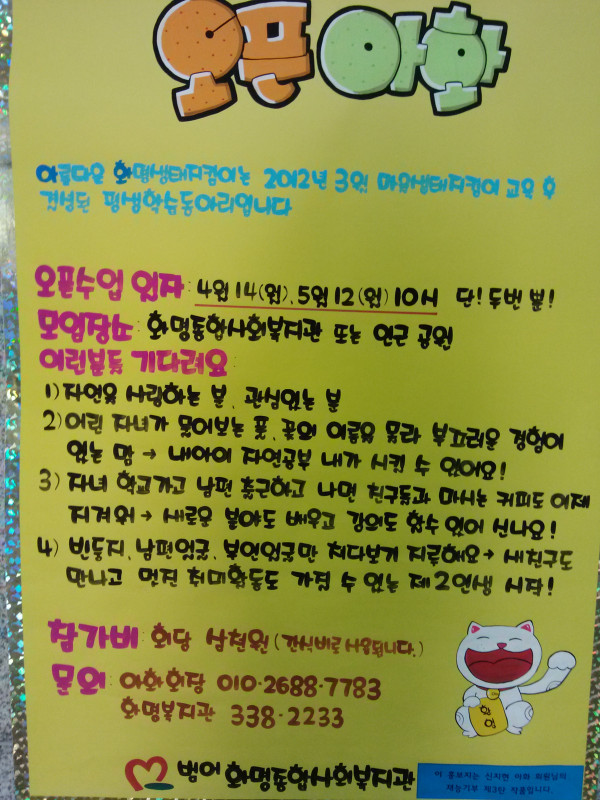 오픈 아화
아름다운 화명생태지킴이는 2012년 3월 마을생태지킴이 교육 후
결성된 평생학습동아리입니다
오픈수업 일자: 4월 14(월), 5월 12(월) 10시 단! 두번 뿐!
모임장소: 화명종합사회복지관 또는 인근 공원
이런분들 기다려요
1) 자연을 사랑하는 분, 관심있는 분
2) 어린 자녀가 물어보는 풀, 꽃의 이름을 몰라 부끄러운 경험이
있는 맘 → 내아이 자연공부 내가 시킬 수 있어요!
3) 자녀 학교가고 남편 출근하고 나면 친구들과 마시는 커피도 이제
지겨워 → 새로운 분야도 배우고 강의도 할수 있어 신나요!
4) 빈둥지, 남편얼굴, 부인얼굴만 쳐다보기 지루해요 → 새친구도
만나고 멋진 취미활동도 가질 수 있는 제2인생 시작!
참가비: 회당 삼천원 (간식비로 사용됩니다.)
문의: 아화회당 010-2688-7783
화명복지관 338-2233
화명
범어 화명종합사회복지관
이 홍보지는 신지현 아화 회원님의
재능기부 제3탄 작품입니다.